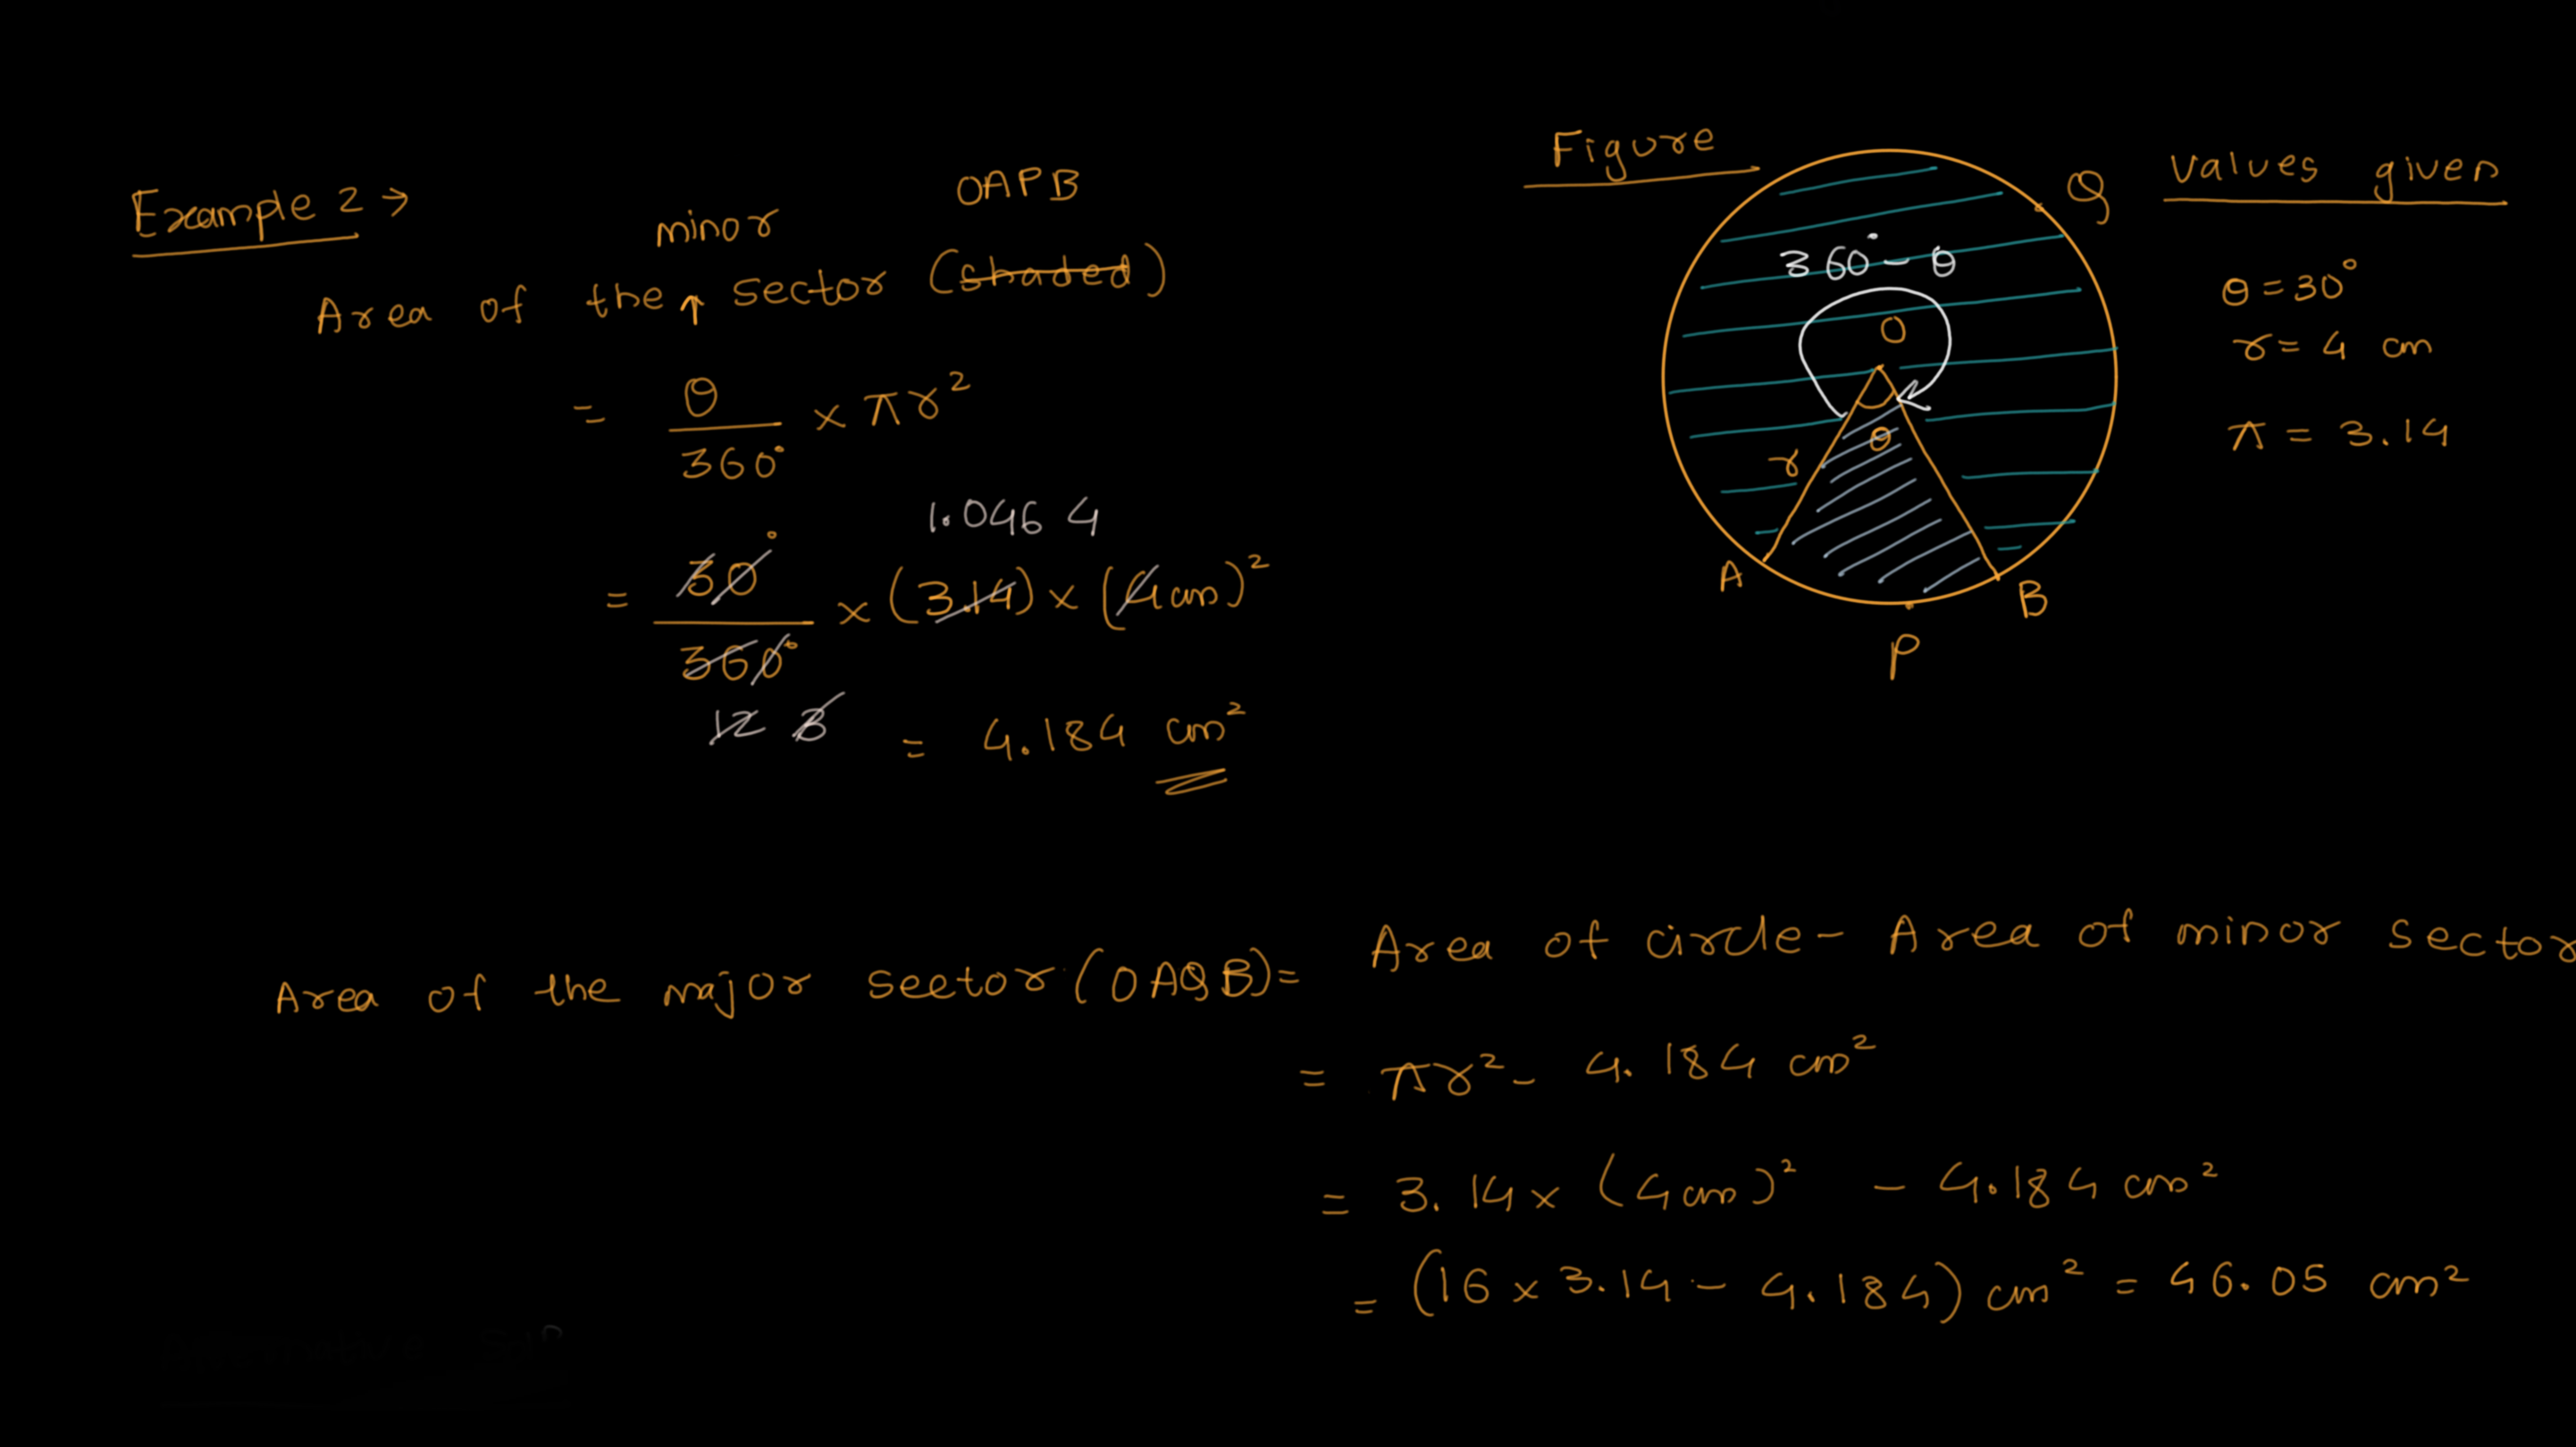 Example 2 →
minor OAPB
Area of the ↑ sector (shaded)
= θ/360° × πr²
1.046 4
= 30°/360° × (3.14) × (4cm)²
12 3
= 4.184 cm²
Figure
Q
360° - θ
O
θ
r
A
B
P
Values given
θ = 30°
r = 4 cm
π = 3.14
Area of the major sector (OAQB) = Area of circle - Area of minor sector
= πr² - 4.184 cm²
= 3.14 × (4cm)² - 4.184 cm²
= (16 × 3.14 - 4.184) cm² = 46.05 cm²